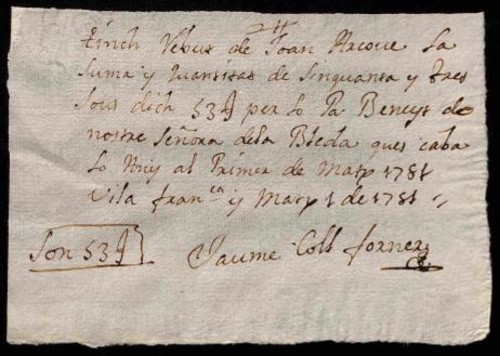 Tinch Rebut de Joan Arcoue la
Suma y Quantitat de Sinquanta y tres
sous dich 53 per lo Pa Beneyt de
nostre Señora dela Bleda ques caba
lo Any al Primer de Mars 1781
Vila fran.ca y Mars 1 de 1781
Son 53
Jaume Coll forner